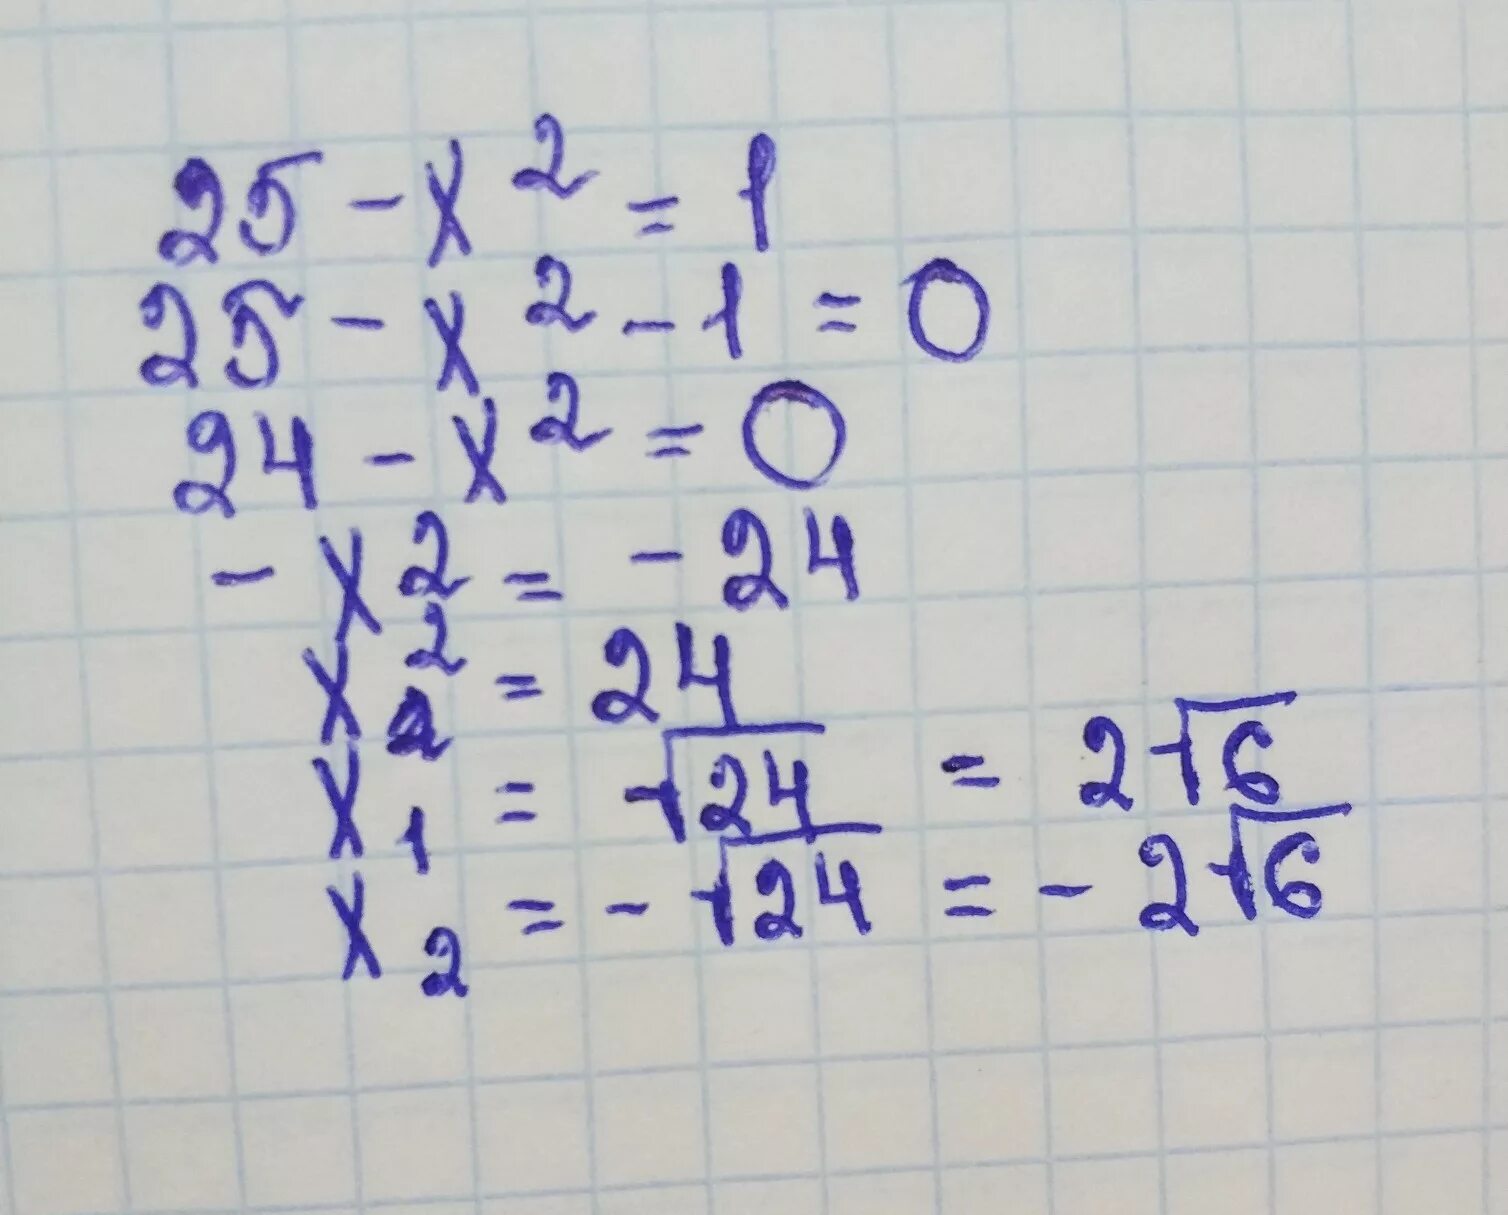 25 - x² = 1
25 - x² - 1 = 0
24 - x² = 0
- x² = - 24
x² = 24
x₁ = √24 = 2√6
x₂ = - √24 = - 2√6